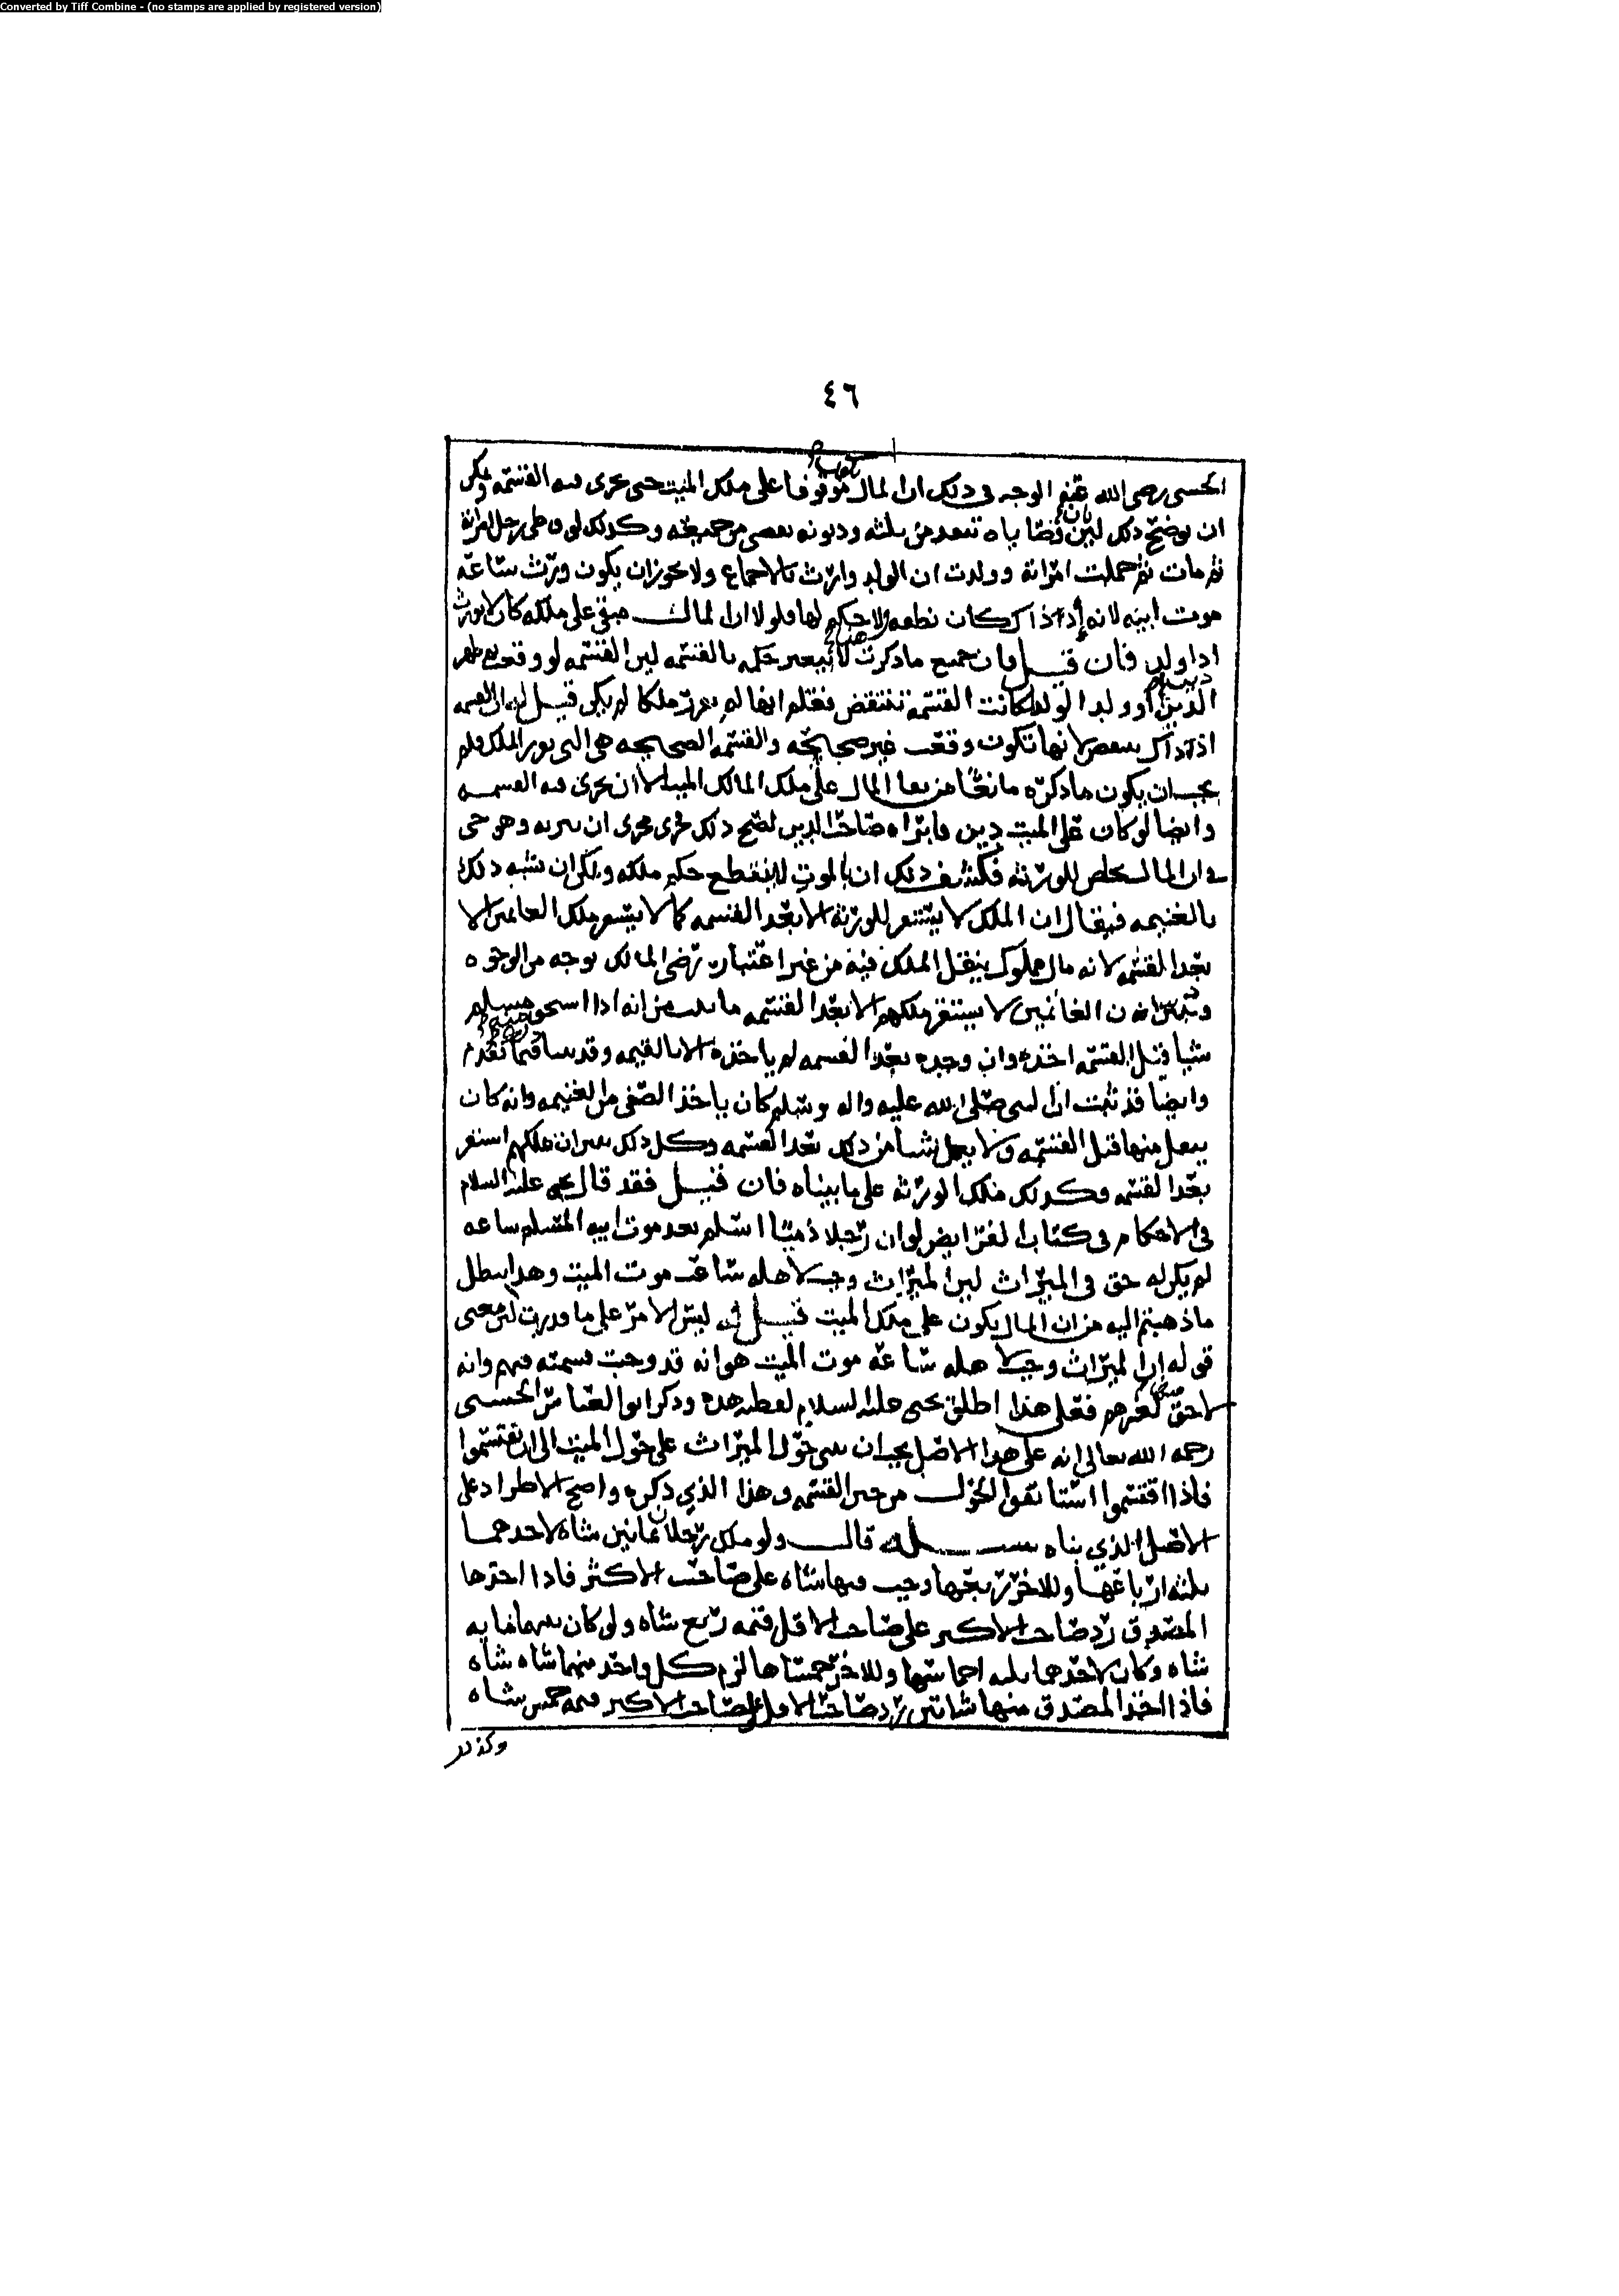 Converted by Tiff Combine - (no stamps are applied by registered version)
٤٦
الحسني رضي الله عنه الوجه في ذلك ان المال موقوفا على ملك الميت حتى تجري فيه القسمة ويمكن
ان يوضح ذلك بان وصاياه تنفذ من ثلثه وديونه تقضى من جميعه وكذلك لو وطي رجل امرأته
ثم مات ثم حملت امرأته وولدت ان الولد وارث بالاجماع ولا يجوز ان يكون ورث ساعة
موت ابيه لانه اذ ذاك كان نطفة ولا حكم لها فلولا ان المال مبقى على ملكه كان لا يورث
اذا ولد فان قيل فان جميع ما ذكرت لا يتغير حكمه بالقسمة لان القسمة لو وقعت ثم ظهر
الدين او ولد الولد لكانت القسمة تنتقض فعلم انها لم تقرر ملكا لم يكن قيل له ان القسمة
اذ ذاك تنتقض لانها تكون وقعت غير صحيحة والقسمة الصحيحة هي التي تورد الملك فلم
يجب ان يكون ما ذكره مانعا من بقا المال على ملك المالك الميت الا ان تجري فيه القسمة
وايضا لو كان على الميت دين فابراه صاحب الدين لصح ذلك فجرى مجرى ان يبريه وهو حي
في ان المال يخلص للورثة فكشف ذلك ان بالموت لا ينقطع حكم ملكه ويمكن ان نشبه ذلك
بالغنيمة فيقال ان الملك لا يستقر للورثة الا بعد القسمة كما لا يستقر ملك الغانمين الا
بعد القسمة لانه مال مملوك ينقل الملك فيه من غير اعتبار ترضي المالك بوجه من الوجوه
وتبين ان الغانمين لا يستقر ملكهم الا بعد القسمة ما ثبت من انه اذا استحق مسلم
شيا قبل القسمة اخذه وان وجده بعد القسمة لم ياخذه الا بالقيمة وقد بينا فيما تقدم
وايضا قد ثبت ان النبي صلى الله عليه واله وسلم كان ياخذ الصفي من الغنيمة وانه كان
ينفل منها قبل القسمة ولا ينفل شيا من ذلك بعد القسمة وكل ذلك يبين ان ملكهم استقر
بعد القسمة وكذلك ملك الورثة على ما بيناه فان قيل فقد قال يحيى عليه السلام
في الاحكام في كتاب الفرايض لو ان رجلا ذميا اسلم بعد موت ابيه المسلم ساعة
لم يكن له حق في الميراث لان الميراث وجب لاهله ساعة موت الميت وهذا يبطل
ما ذهبتم اليه من ان المال يكون على ملك الميت قيل له ليس الامر على ما قدرت لان معنى
قوله ان الميراث وجب لاهله ساعة موت الميت هو انه قد وجبت قسمته فيهم وانه
لا حق لغيرهم فعلى هذا اطلق يحيى عليه السلام لفظه هذه وذكر ابو العباس الحسني
رحمه الله تعالى انه على هذا الاصل يجب ان يبنى حول الميراث على حول الميت الى ان يقتسموا
فاذا اقتسموا استانفوا الحول من حين القسمة وهذا الذي ذكره واضح الاطراد على
الاصل الذي بناه مسألة قال ولو ملك رجلان ثمانين شاة لاحدهما
ثلثة ارباعها وللاخر ربعها وجب فيها شاة على صاحب الاكثر فاذا اخذها
المصدق رد صاحب الاكثر على صاحب الاقل قيمة ربع شاة ولو كان بينهما ماية
شاة وكان لاحدهما ثلثة اخماسها وللاخر خمساها لزم كل واحد منهما شاة شاة
فاذا اخذ المصدق منها شاتين رد صاحب الاقل على صاحب الاكثر قيمة خمس شاة
وكذلك